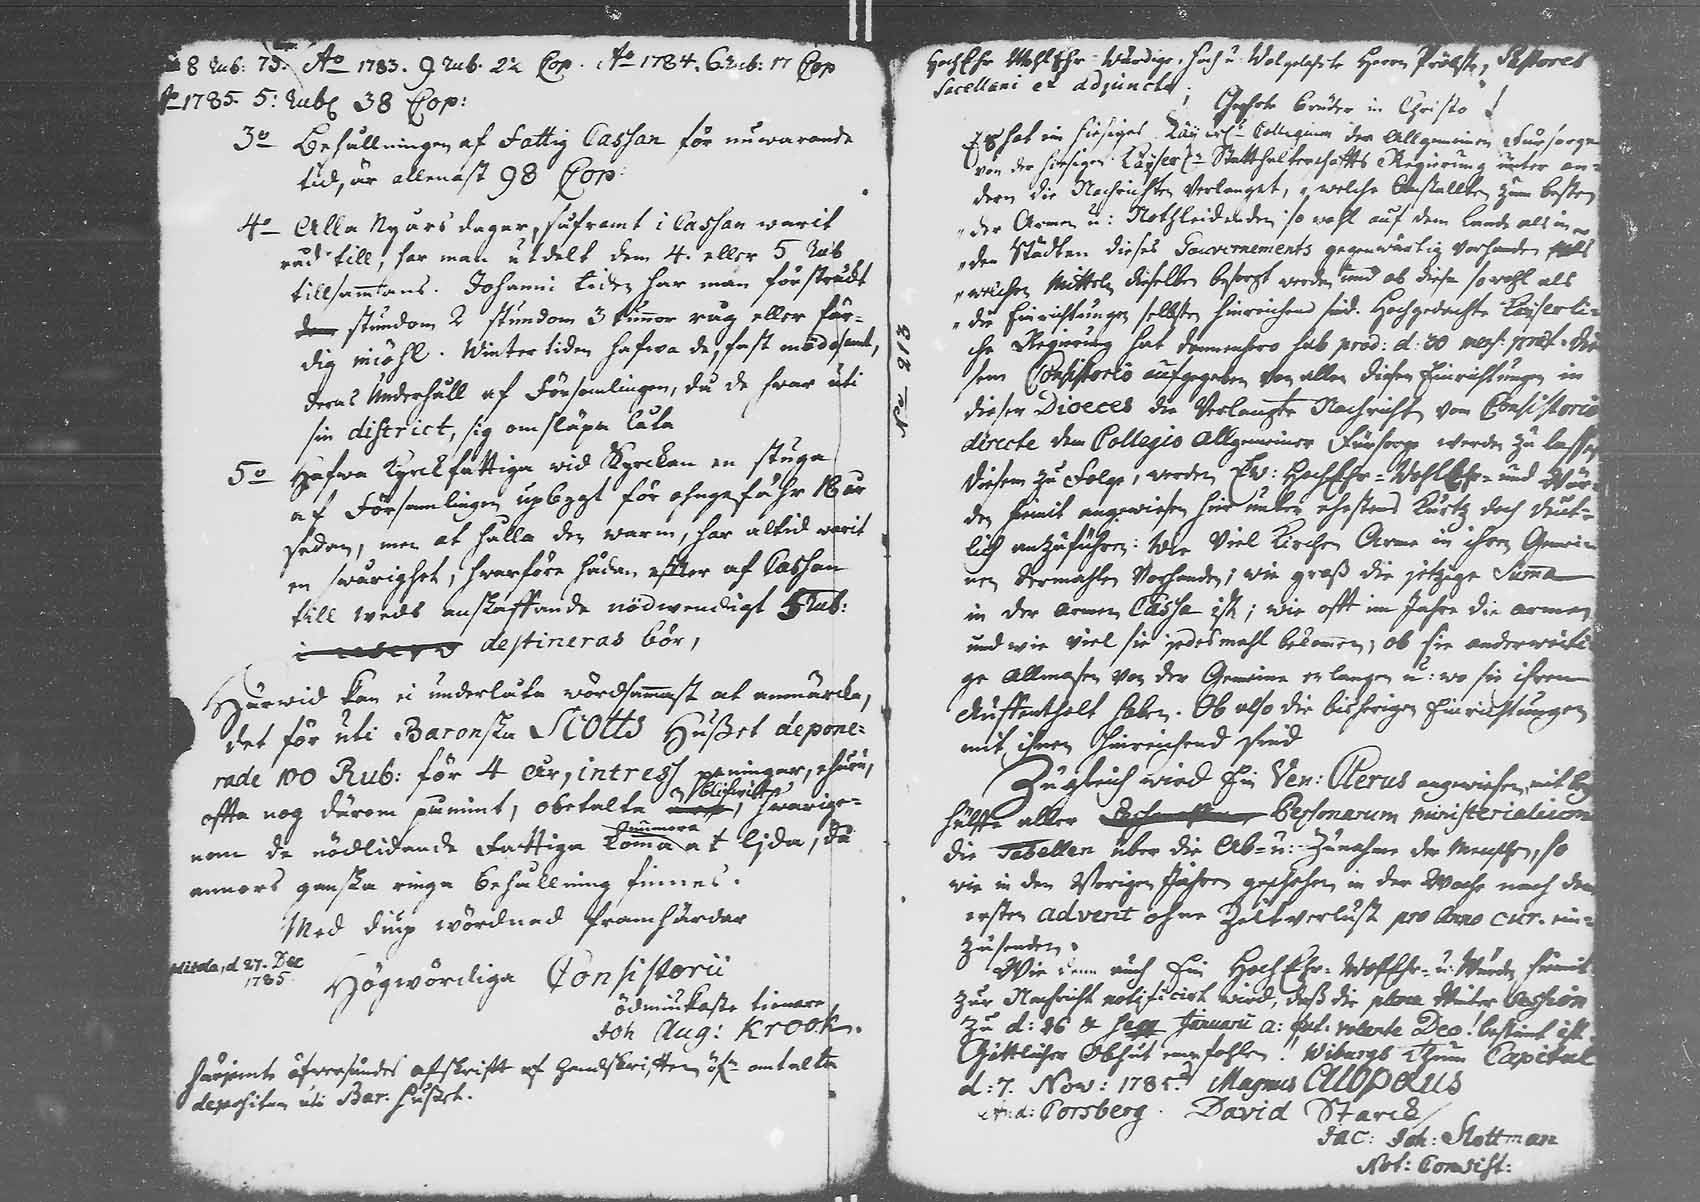 8 Rub: 75. Ao 1783. 9 Rub. 22 Cop. Ao 1784. 6 Rub: 17 Cop
Ao 1785. 5: Rub 38 Cop:
3o Behållningen af Fattig Cassan för nuwarande
tid, är allenast 98 Cop:
4o Alla Nyårs dagar, såframt i Cassan warit
råd till, har man utdelt dem 4. eller 5 Rub
tillsammtans. Johanni tiden har man försträckt
stundom 2 stundom 3 tunnor råg eller fär-
dig miöhl. Wintertiden hafwa de, fast mödosamt,
deras Underhåll af Församlingen, då de hwar uti
sin district, sig omsläpa låta
5o Hafwa Kyrckfattiga wid Kyrckan en stuga
af Församlingen upbygt för ohngefähr 18 år
sedan, men at hålla den warm, har altid warit
en swårighet, hwarföre hädan efter af Cassan
till weds anskaffande nödwendigt 5 Rub:
destineras bör,
Härwid kan ei underlåta wördsammast at anmärcka,
det för uti Baronska Scotts Huset depone-
rade 100 Rub: för 4 åhr, intress peningar, ehuru,
offta nog därom pamint, obetalte blifwit, hwarige-
nom de nödlidande Fattiga komma at ljda, då
annars ganska ringa behållning finnes.
Med diup wördnad framhärdar
d 27. Dec
1785.
Högwördiga Consistorii
ödmiukaste tienare
Joh Aug: Krook.
härjemte öfwersändes afskrift af Handskriften öfr omtalta
depositen uti Bar. Huset.
No 213
HochEhr WohlEhr-Würdige, Hoch u: Wolgelahrte Herren Pröbste, Pastores
Sacellani et adjuncti,
Geehrte Brüder in Christo!
Es hat ein hiesiges Käyserl. Collegium der Allgemeinen Fürsorge
von der hiesigen Käyserl. Statthalterschaffts Regierung unter an-
dern die Nachrichten Verlanget, "welche Anstallten zum besten
"der Armen u: Nothleidenden so wohl auf dem Lande als in
"den Städten dieses Gouvernements gegenwärtig vorhanden
"welchen Mitteln dieselben besorgt werden und ob diese so wohl als
"die Einrichtungen selbsten hinreichend sind. Hochgedachte Kayserli-
che Regierung hat dannenhero sub prod: d: 30 mens: præt. die-
sem Consistorio aufgegeben von allen diesen Einrichtungen in
dieser Dioeces die Verlangte Nachricht vom Consistorio
directe dem Collegio Allgemeiner Fürsorge werden zu lassen
Diesem zu Folge, werden Ew: HochEhr-WohlEhr- und Wür-
den hiemit angewiesen hierunter ehestens Kurtz doch deut-
lich anzuführen: Wie Viel Kirchen Arme in ihren Gemei-
nen dermahlen Vorhanden; wie groß die jetzige Summa
in der armen Cassa ist; wie offt im Jahre die armen,
und wie viel sie jedesmahl bekommen; ob sie anderweiti-
ge Allmosen von der Gemeine erlangen u: wo sie ihren
Auffenthalt haben. Ob also die bisherigen Einrichtungen
mit ihnen hinreichend sind
Zugleich wird Ein Ven: Clerus angewiesen, mit
hülffe aller Personarum ministerialium
die Tabellen über die Ab- u: Zunahme der Menschen, so
wie in den Vorigen Jahren geschehen in der Woche nach dem
ersten advent ohne Zeitverlust pro Anno curr. ein-
zusenden.
Wie denn auch Ein HochEhr- WollEhr- u: Würden hiemit
zur Nachricht notificirt wird, daß die plena Winter Session
zu d: 26 Januarii a: fut: volente Deo! bestimt ist.
Göttlicher Obhut empfohlen! Wiburgs Thum Capitul
d: 7. Nov: 1785. Magnus Alopæus
And: Porsberg. David Starck
Jac: Joh: Slottman
Not: Consist: